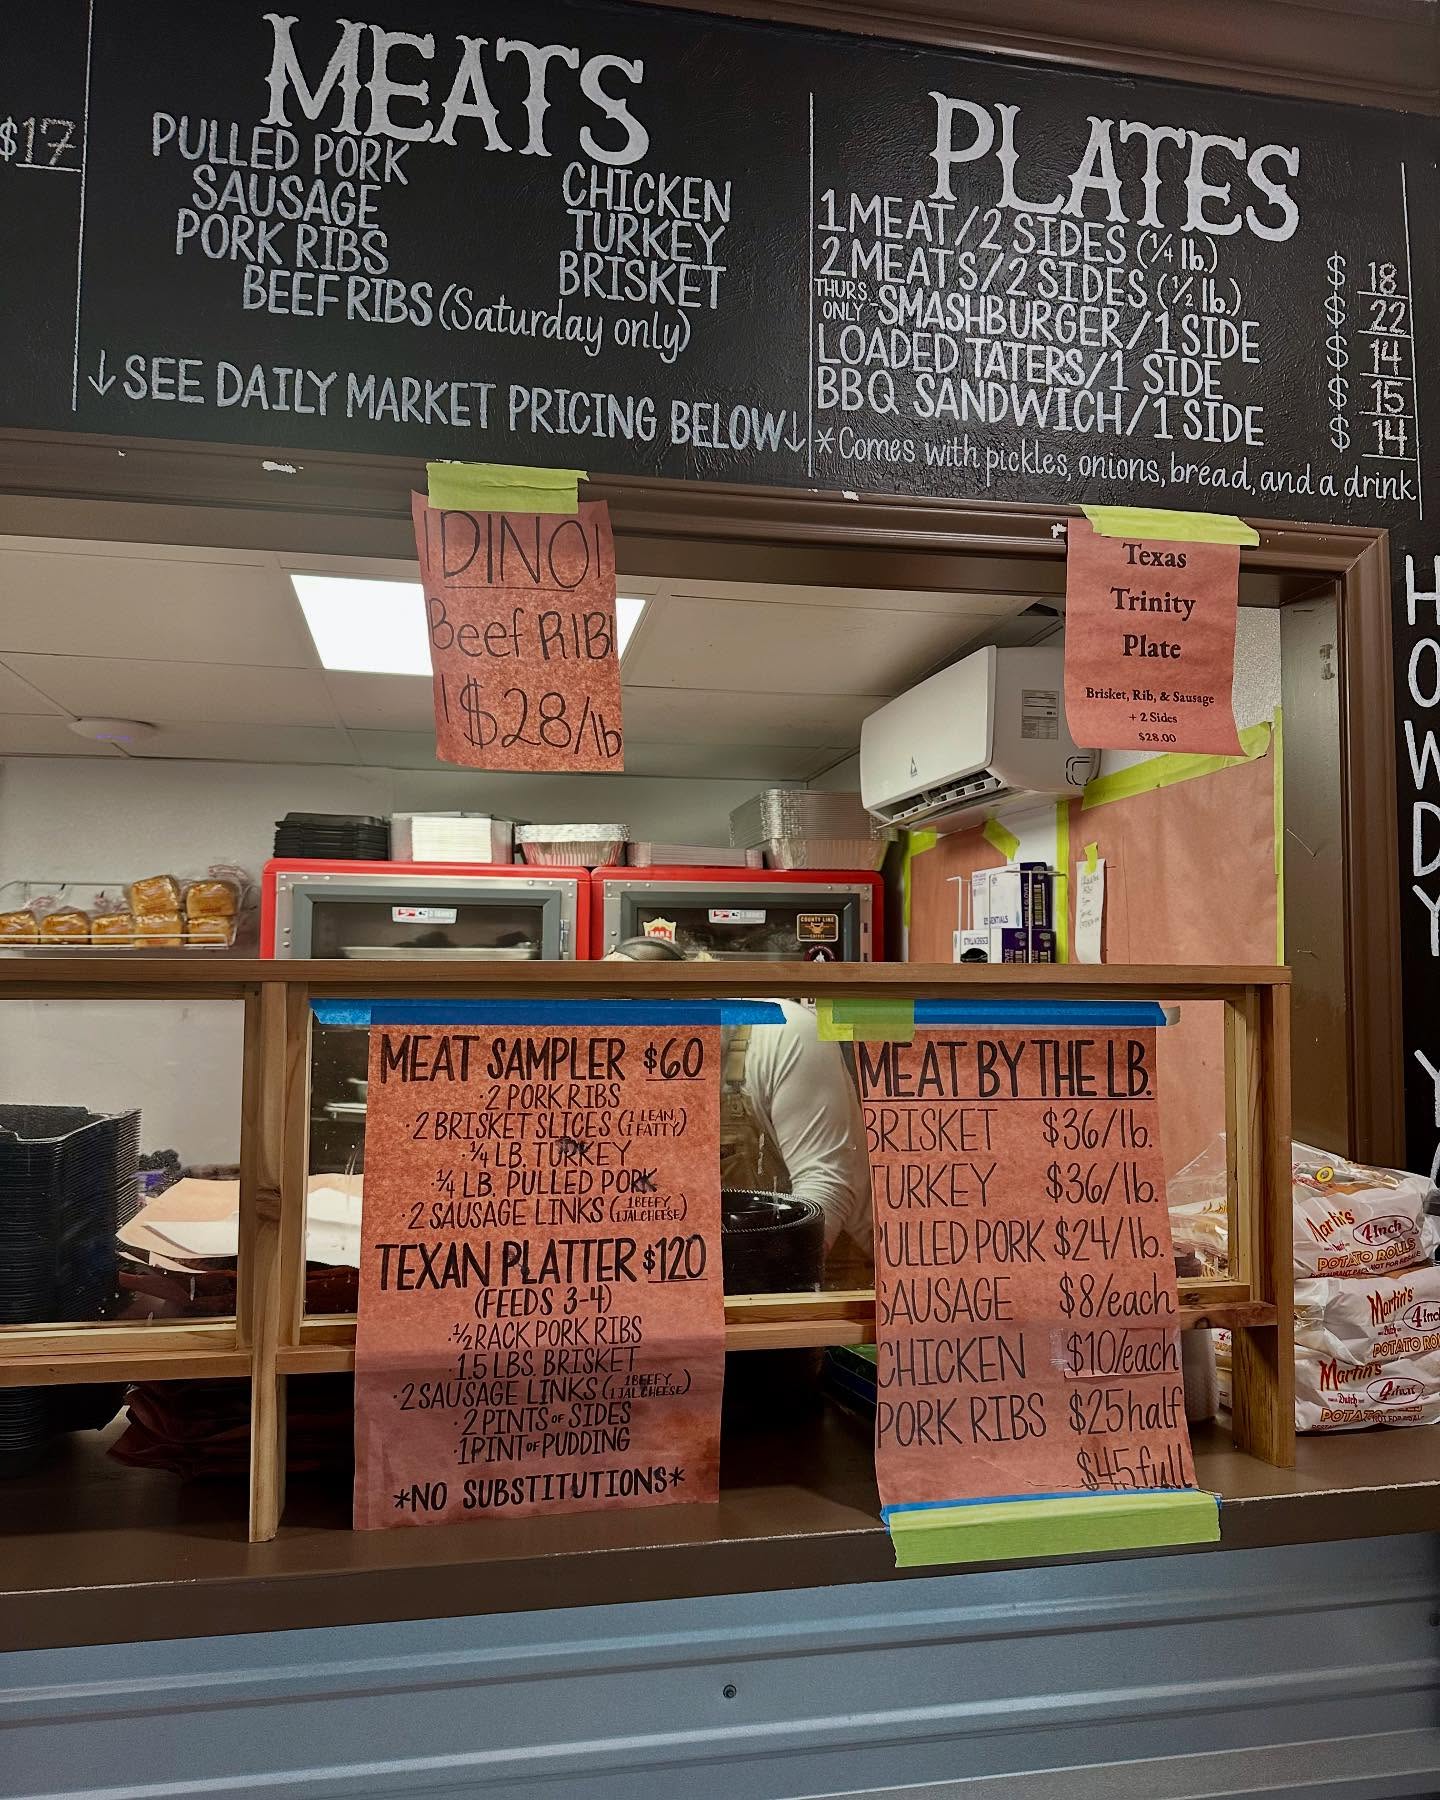 $17
MEATS
PULLED PORK
SAUSAGE
PORK RIBS
CHICKEN
TURKEY
BRISKET
BEEF RIBS (Saturday only)
↓SEE DAILY MARKET PRICING BELOW↓
PLATES
1 MEAT/2 SIDES (1/4 lb.) $ 18
2 MEATS/2 SIDES (1/2 lb.) $ 22
THURS. ONLY -SMASHBURGER/1 SIDE $ 14
LOADED TATERS/1 SIDE $ 15
BBQ SANDWICH/1 SIDE $ 14
*Comes with pickles, onions, bread, and a drink
HOWDY
DINO
Beef RIB
$28/lb
Texas
Trinity
Plate
Brisket, Rib, & Sausage
+ 2 Sides
$28.00
COUNTY LINE
MEAT SAMPLER $60
·2 PORK RIBS
·2 BRISKET SLICES (1 LEAN, 1 FATTY)
·1/4 LB. TURKEY
·1/4 LB. PULLED PORK
·2 SAUSAGE LINKS (1 BEEFY 1 JALCHEESE)
TEXAN PLATTER $120
(FEEDS 3-4)
·1/2 RACK PORK RIBS
·1.5 LBS. BRISKET
·2 SAUSAGE LINKS (1 BEEFY 1 JALCHEESE)
·2 PINTS OF SIDES
·1 PINT OF PUDDING
*NO SUBSTITUTIONS*
MEAT BY THE LB.
BRISKET $36/lb.
TURKEY $36/lb.
PULLED PORK $24/lb.
SAUSAGE $8/each
CHICKEN $10/each
PORK RIBS $25 half
$45 full
Martin's
4 Inch
POTATO ROLLS
Martin's
Dutch
4 Inch
POTATO RO
Martin's
Dutch